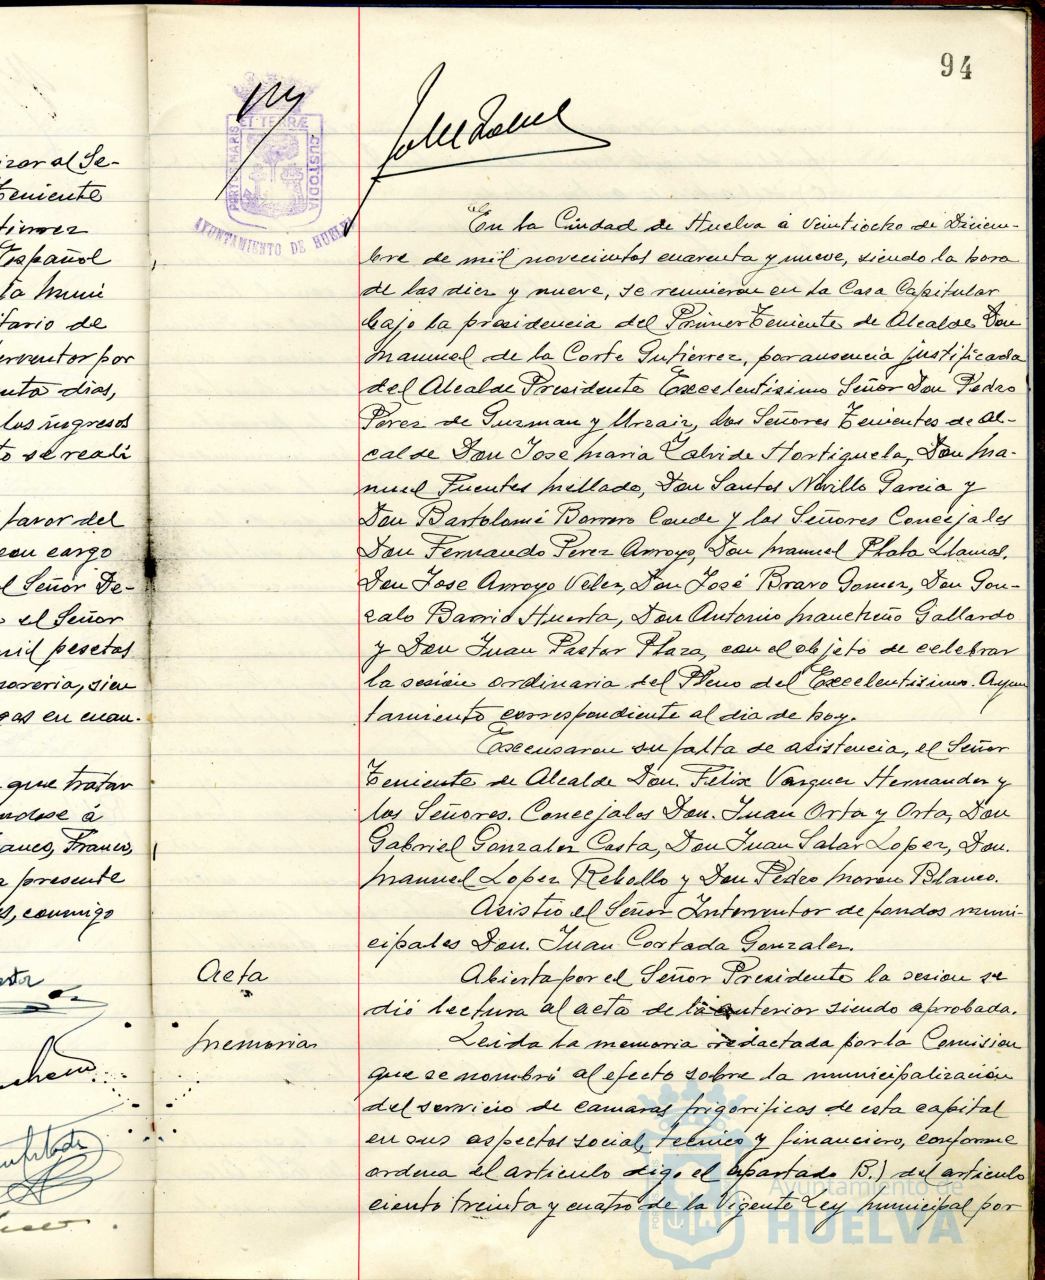 94
PORTUS MARIS ET TERRÆ CUSTODIA
AYUNTAMIENTO DE HUELVA
izar al Se-
Teniente
Español
ta muni
tario de
erventor por
enta dias,
los ingresos
to se reali
favor del
con cargo
el Señor De-
o el Señor
mil pesetas
sorería, sien
gas en cuan-
que tratar
ndose á
anco, Franco,
a presente
es, conmigo
En la Ciudad de Huelva á veintiocho de Diciem-
bre de mil novecientos cuarenta y nueve, siendo la hora
de las diez y nueve, se reunieron en la Casa Capitular
bajo la presidencia del Primer Teniente de Alcalde Don
Manuel de la Corte Gutierrez, por ausencia justificada
del Alcalde Presidente Excelentisimo Señor Don Pedro
Perez de Guzman y Urzaiz, los Señores Tenientes de Al-
calde Don Jose Maria Zalvide Hortiguela, Don Ma-
nuel Fuentes Mellado, Don Santos Novillo Garcia y
Don Bartolomé Borrero Conde y los Señores Concejales
Don Fernando Perez Arroyo, Don Manuel Plata Llamas,
Don Jose Arroyo Velez, Don José Bravo Gomez, Don Gon-
zalo Barrio Huerta, Don Antonio Mancheño Gallardo
y Don Juan Pastor Plaza, con el objeto de celebrar
la sesión ordinaria del Pleno del Excelentisimo. Ayun
tamiento correspondiente al dia de hoy.
Excusaron su falta de asistencia, el Señor
Teniente de Alcalde Don. Félix Vazquez Hernandez y
los Señores. Concejales Don. Juan Orta y Orta, Don
Gabriel Gonzalez Costa, Don Juan Salas Lopez, Don.
Manuel Lopez Rebollo y Don Pedro Moron Blanco.
Asistio el Señor Interventor de fondos muni-
cipales Don. Juan Cortada Gonzalez.
Acta
Abierta por el Señor Presidente la sesion se
dió lectura al acta de la anterior siendo aprobada.
Memoria
Leida la memoria redactada por la Comision
que se nombró al efecto sobre la municipalización
del servicio de camaras frigorificas de esta capital
en sus aspectos social, técnico y financiero, conforme
ordena el articulo digo el apartado B.) del articulo
ciento treinta y cuatro de la vigente Ley municipal por
Ayuntamiento de
HUELVA